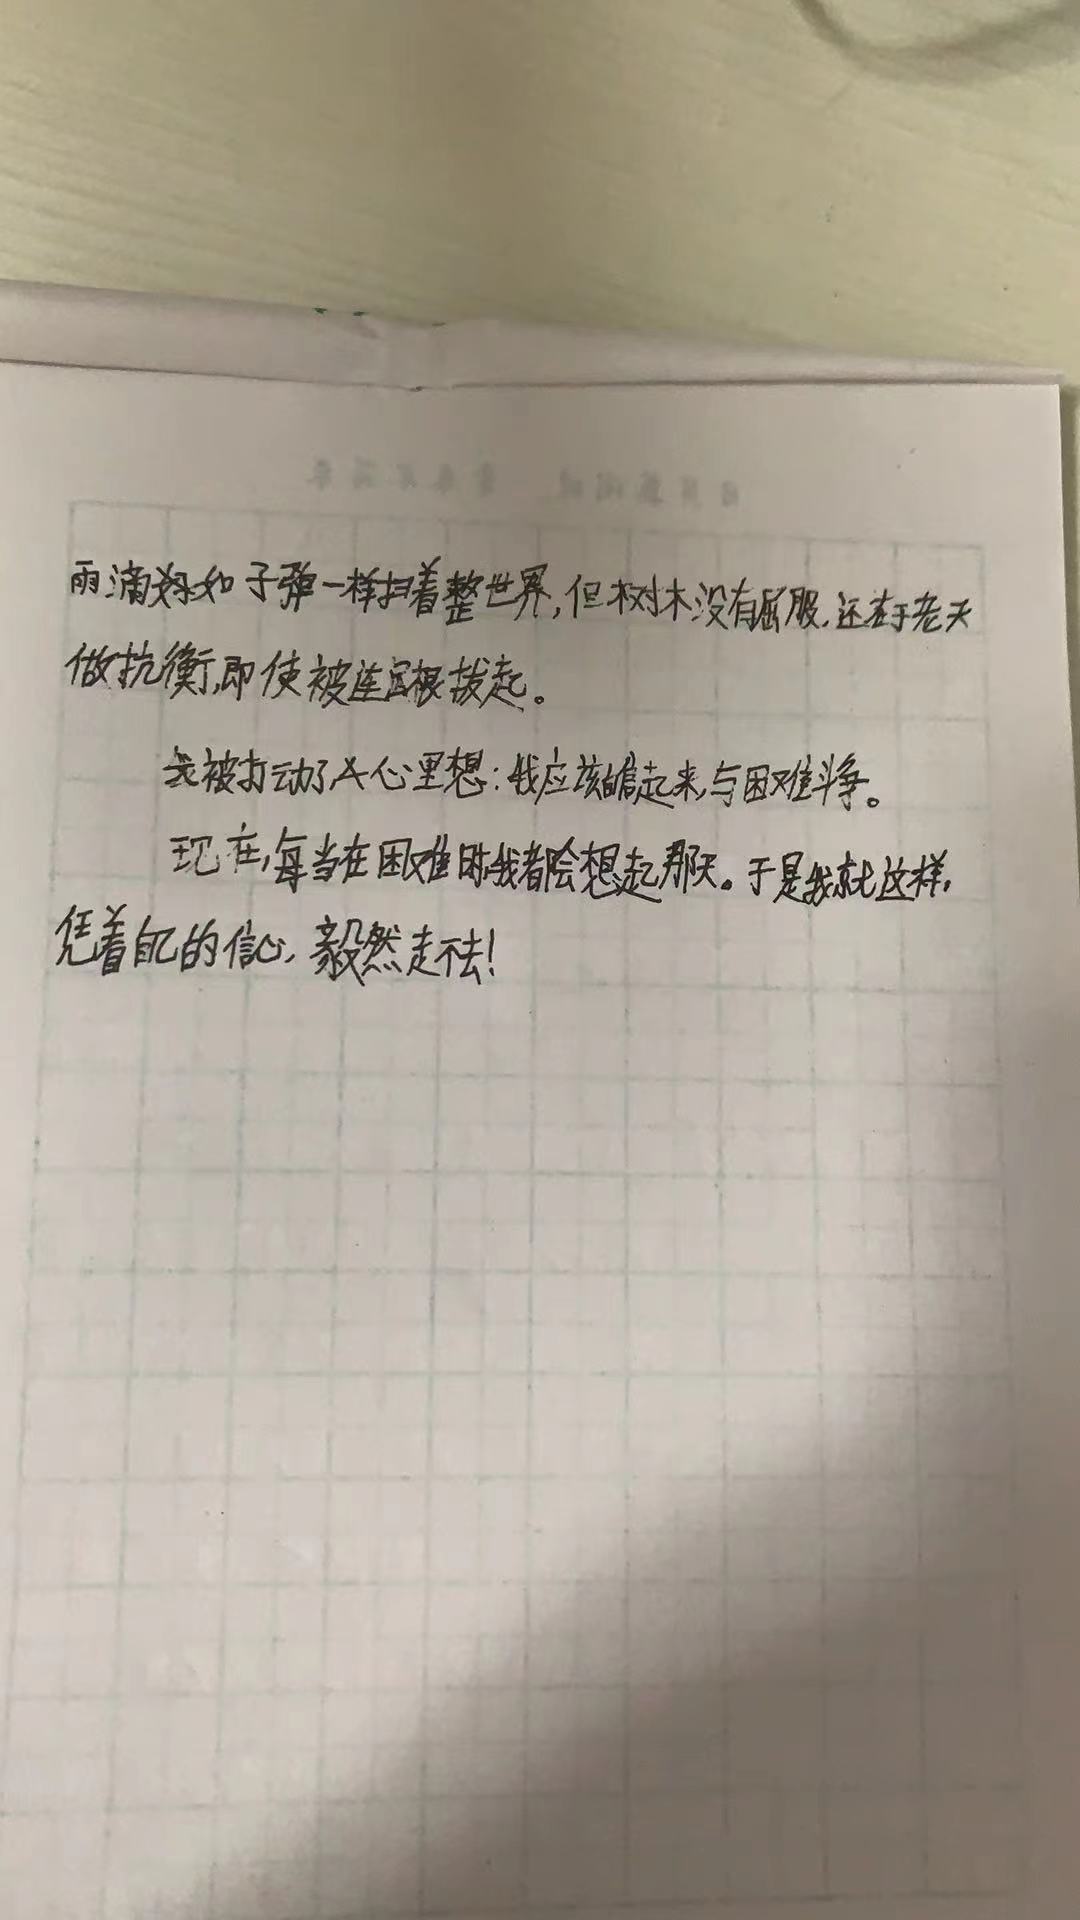 雨滴好如子弹一样扫着整世界,但树木没有屈服.还在于老天
做抗衡,即使被连根拔起。
我被打动了心里想:我应该起来,与困难斗争。
现在,每当在困难时我都会想起那天。于是我就这样,
凭着自己的信心,毅然走下去!